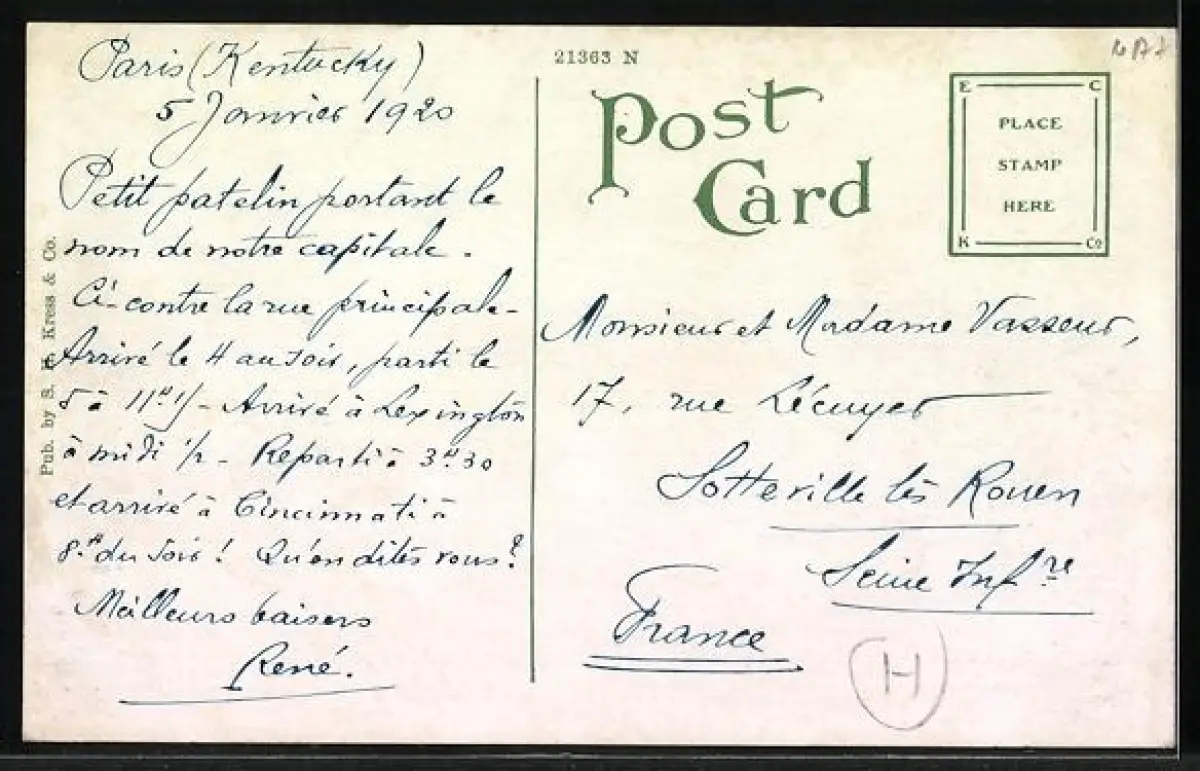 Paris (Kentucky)
5 Janvier 1920
Petit patelin portant le
nom de notre capitale.
Ci-contre la rue principale-
Arrivé le 4 au soir, parti le
5 à 11H - Arrivé à Lexington
à midi 1/2 - Reparti à 3H30
et arrivé à Cincinnati à
8H du soir ! Qu'en dites vous ?
Meilleurs baisers
René.
Pub. by S. H. Kress & Co.
21363 N
Post
Card
E C
PLACE
STAMP
HERE
K Co
Monsieur et Madame Vasseur,
17, rue Lécuyer
Sotteville lès Rouen
Seine Infre
France
H